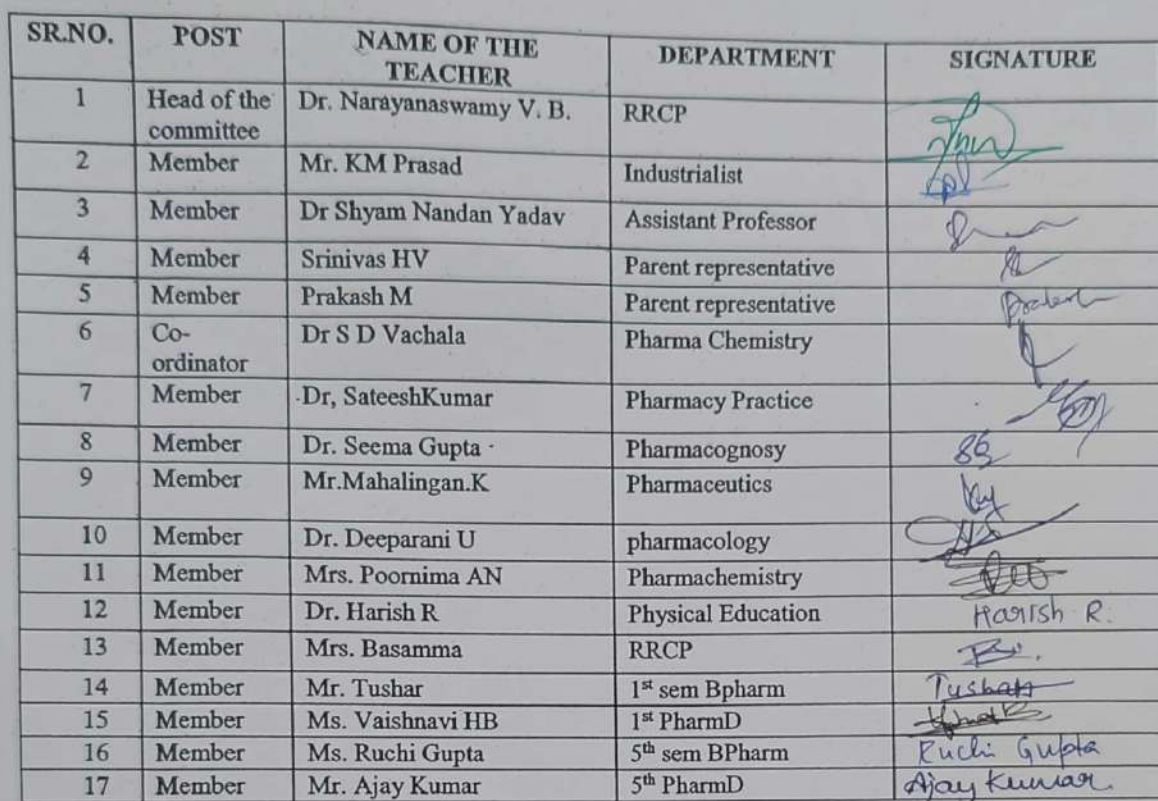 SR.NO. POST NAME OF THE TEACHER DEPARTMENT SIGNATURE
1 Head of the committee Dr. Narayanaswamy V. B. RRCP
2 Member Mr. KM Prasad Industrialist
3 Member Dr Shyam Nandan Yadav Assistant Professor
4 Member Srinivas HV Parent representative
5 Member Prakash M Parent representative
6 Co-ordinator Dr S D Vachala Pharma Chemistry
7 Member Dr, SateeshKumar Pharmacy Practice
8 Member Dr. Seema Gupta Pharmacognosy
9 Member Mr.Mahalingan.K Pharmaceutics
10 Member Dr. Deeparani U pharmacology
11 Member Mrs. Poornima AN Pharmachemistry
12 Member Dr. Harish R Physical Education Harish R.
13 Member Mrs. Basamma RRCP
14 Member Mr. Tushar 1st sem Bpharm Tushar
15 Member Ms. Vaishnavi HB 1st PharmD
16 Member Ms. Ruchi Gupta 5th sem BPharm Ruchi Gupta
17 Member Mr. Ajay Kumar 5th PharmD Ajay Kumar